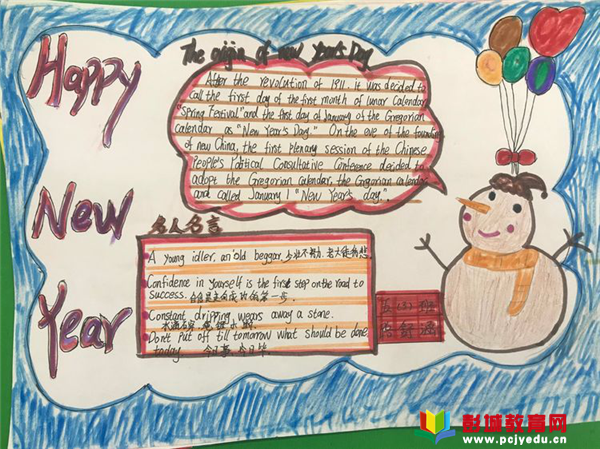 Happy
New
Year
The origin of new Year's Day
After the revolution of 1911, it was decided to
call the first day of the first month of lunar calendar
"Spring Festival" and the first day of January of the Gregorian
calendar as "New Year's Day." On the eve of the founding
of new China, the first plenary session of the Chinese
People's Political Consultative Conference decided to
adopt the Gregorian calendar, the Gregorian calendar
and called January 1 "New Year's day".
名人名言
A young idler, an old beggar. 少壮不努力, 老大徒伤悲.
Confidence in yourself is the first step on the road to
success. 自信是走向成功的第一步.
Constant dripping wears away a stone.
水滴石穿, 绳锯木断.
Don't put off till tomorrow what should be done
today. 今日事, 今日毕.
五(3)班
彭城教育网
www.pcjyedu.cn